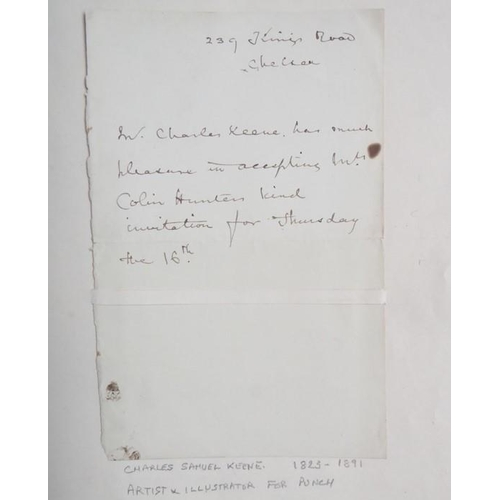 239 Kings Road
Chelsea
Mr. Charles Keene, has much
pleasure in accepting Mrs
Colin Hunters kind
invitation for Thursday
the 16th.
CHARLES SAMUEL KEENE. 1823 - 1891
ARTIST & ILLUSTRATOR FOR PUNCH